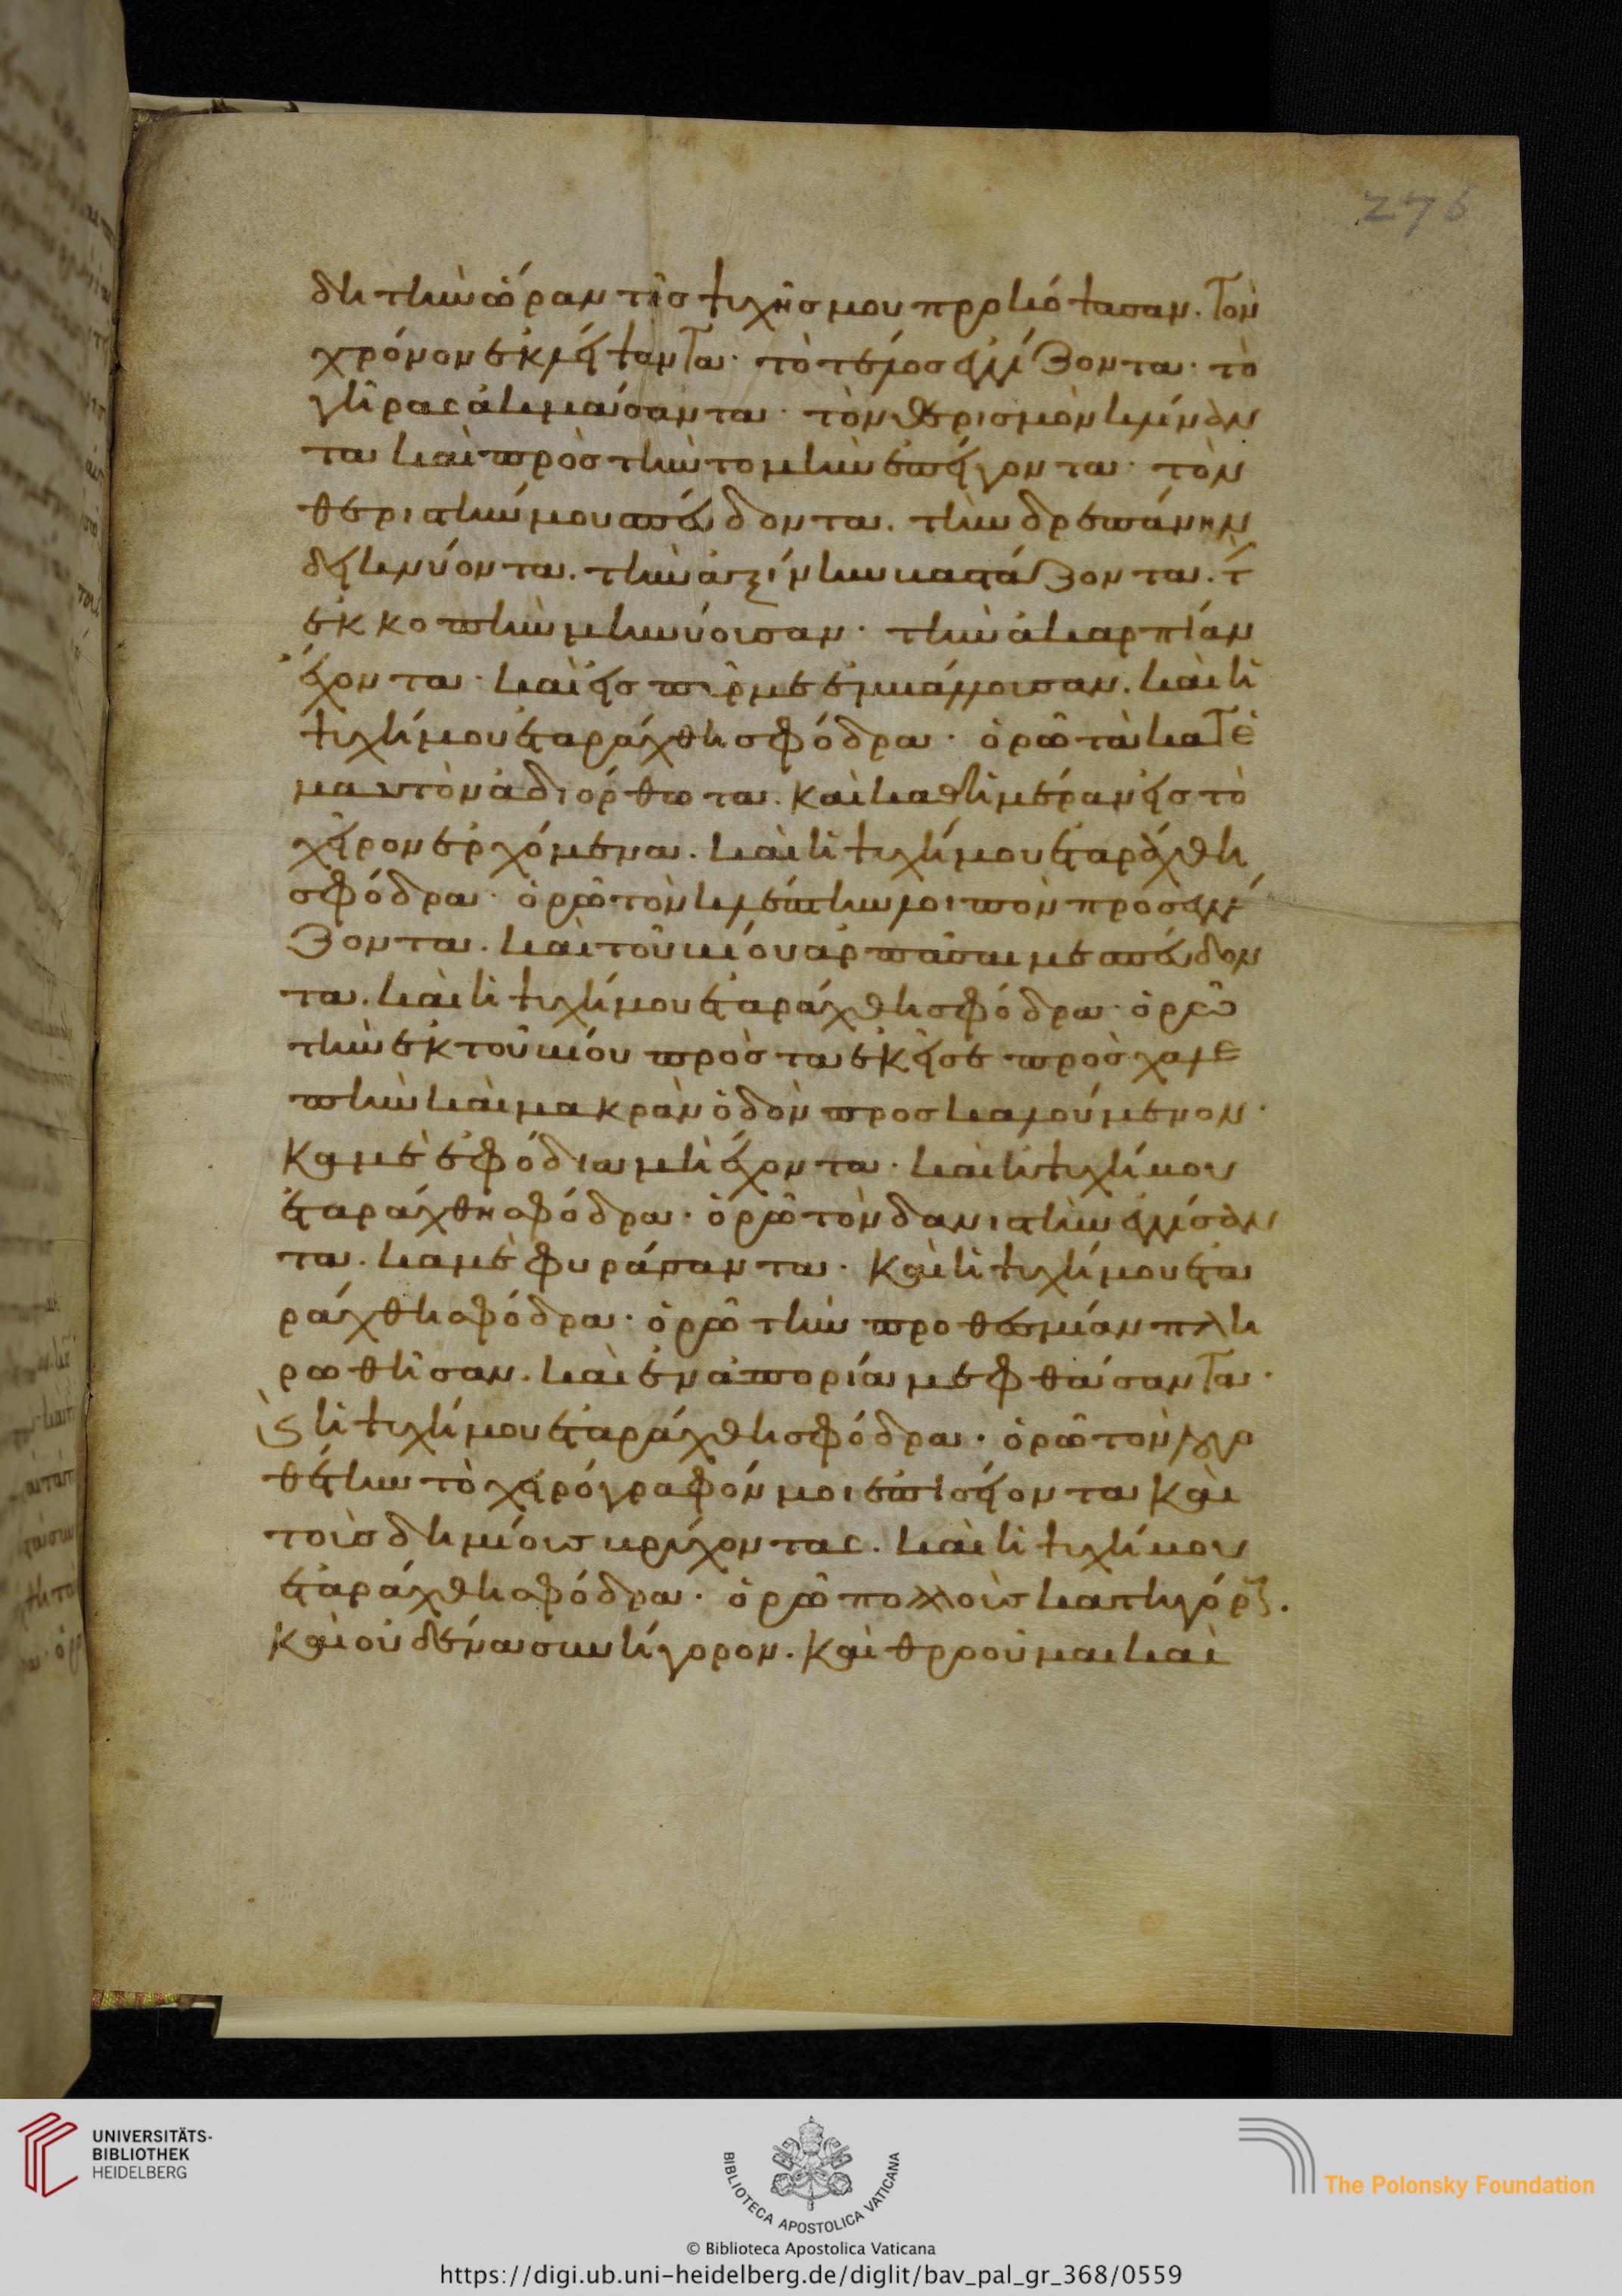 276
δη τὴν ὥραν τῆς ψυχῆς μου προκόψασαν. Τὸν
χρόνον ἐκλείψαντα· τὸ τέλος ἐγγίζοντα· τὸ
γῆρας ἀκμάσαντα· τὸν θερισμὸν κλίναν
τα καὶ πρὸς τὴν τομὴν ἐπείγοντα· τὸν
θεριστήν μου σπεύδοντα. τὴν δρεπάνην
δεικνύοντα. τὴν ἀξίνην βαστάζοντα. τ
ἐκκοπὴν μηνύουσαν· τὴν ἀκαρπίαν
ἔχοντα· καὶ εἰς πῦρ με ἐμβάλλουσαν. καὶ ἡ
ψυχή μου ἐταράχθη σφόδρα· ὁρῶ τὰ κατ' ἐ
μαυτὸν ἀδιόρθωτα. καὶ καθ' ἡμέραν εἰς τὸ
χεῖρον ἐρχόμενα. καὶ ἡ ψυχή μου ἐταράχθη
σφόδρα· ὁρῶ τὸν κλέπτην λοιπὸν προσεγγί
ζοντα. καὶ τοῦ βίου ἁρπᾶσαι με σπεύδον
τα. καὶ ἡ ψυχή μου ἐταράχθη σφόδρα· ὁρῶ
τὴν ἐκ τοῦ βίου πρὸς τὰ ἐκεῖσε πρὸς χαλε
πὴν καὶ μακρὰν ὁδὸν προσκαλούμενον·
κἀμὲ ἐφόδια μὴ ἔχοντα· καὶ ἡ ψυχή μου
ἐταράχθη σφόδρα· ὁρῶ τὸν δανιστὴν ἐγγίσαν
τα. κἀμὲ φυράσαντα· καὶ ἡ ψυχή μου ἐτα
ράχθη σφόδρα· ὁρῶ τὴν προθεσμίαν πλη
ρωθῆσαν. καὶ ἐν ἀπορία με φθάσαντα·
καὶ ἡ ψυχή μου ἐταράχθη σφόδρα· ὁρῶ τὸν λογο
θέτην τὸ χειρόγραφόν μοι ἐπισείοντα καὶ
τοὺς δημίους βρύχοντας. καὶ ἡ ψυχή μου
ἐταράχθη σφόδρα· ὁρῶ πολλοὺς κατηγόρους.
καὶ οὐδένα συνήγορον. καὶ θροοῦμαι καὶ
UNIVERSITÄTS-
BIBLIOTHEK
HEIDELBERG
BIBLIOTECA APOSTOLICA VATICANA
The Polonsky Foundation
© Biblioteca Apostolica Vaticana
https://digi.ub.uni-heidelberg.de/diglit/bav_pal_gr_368/0559